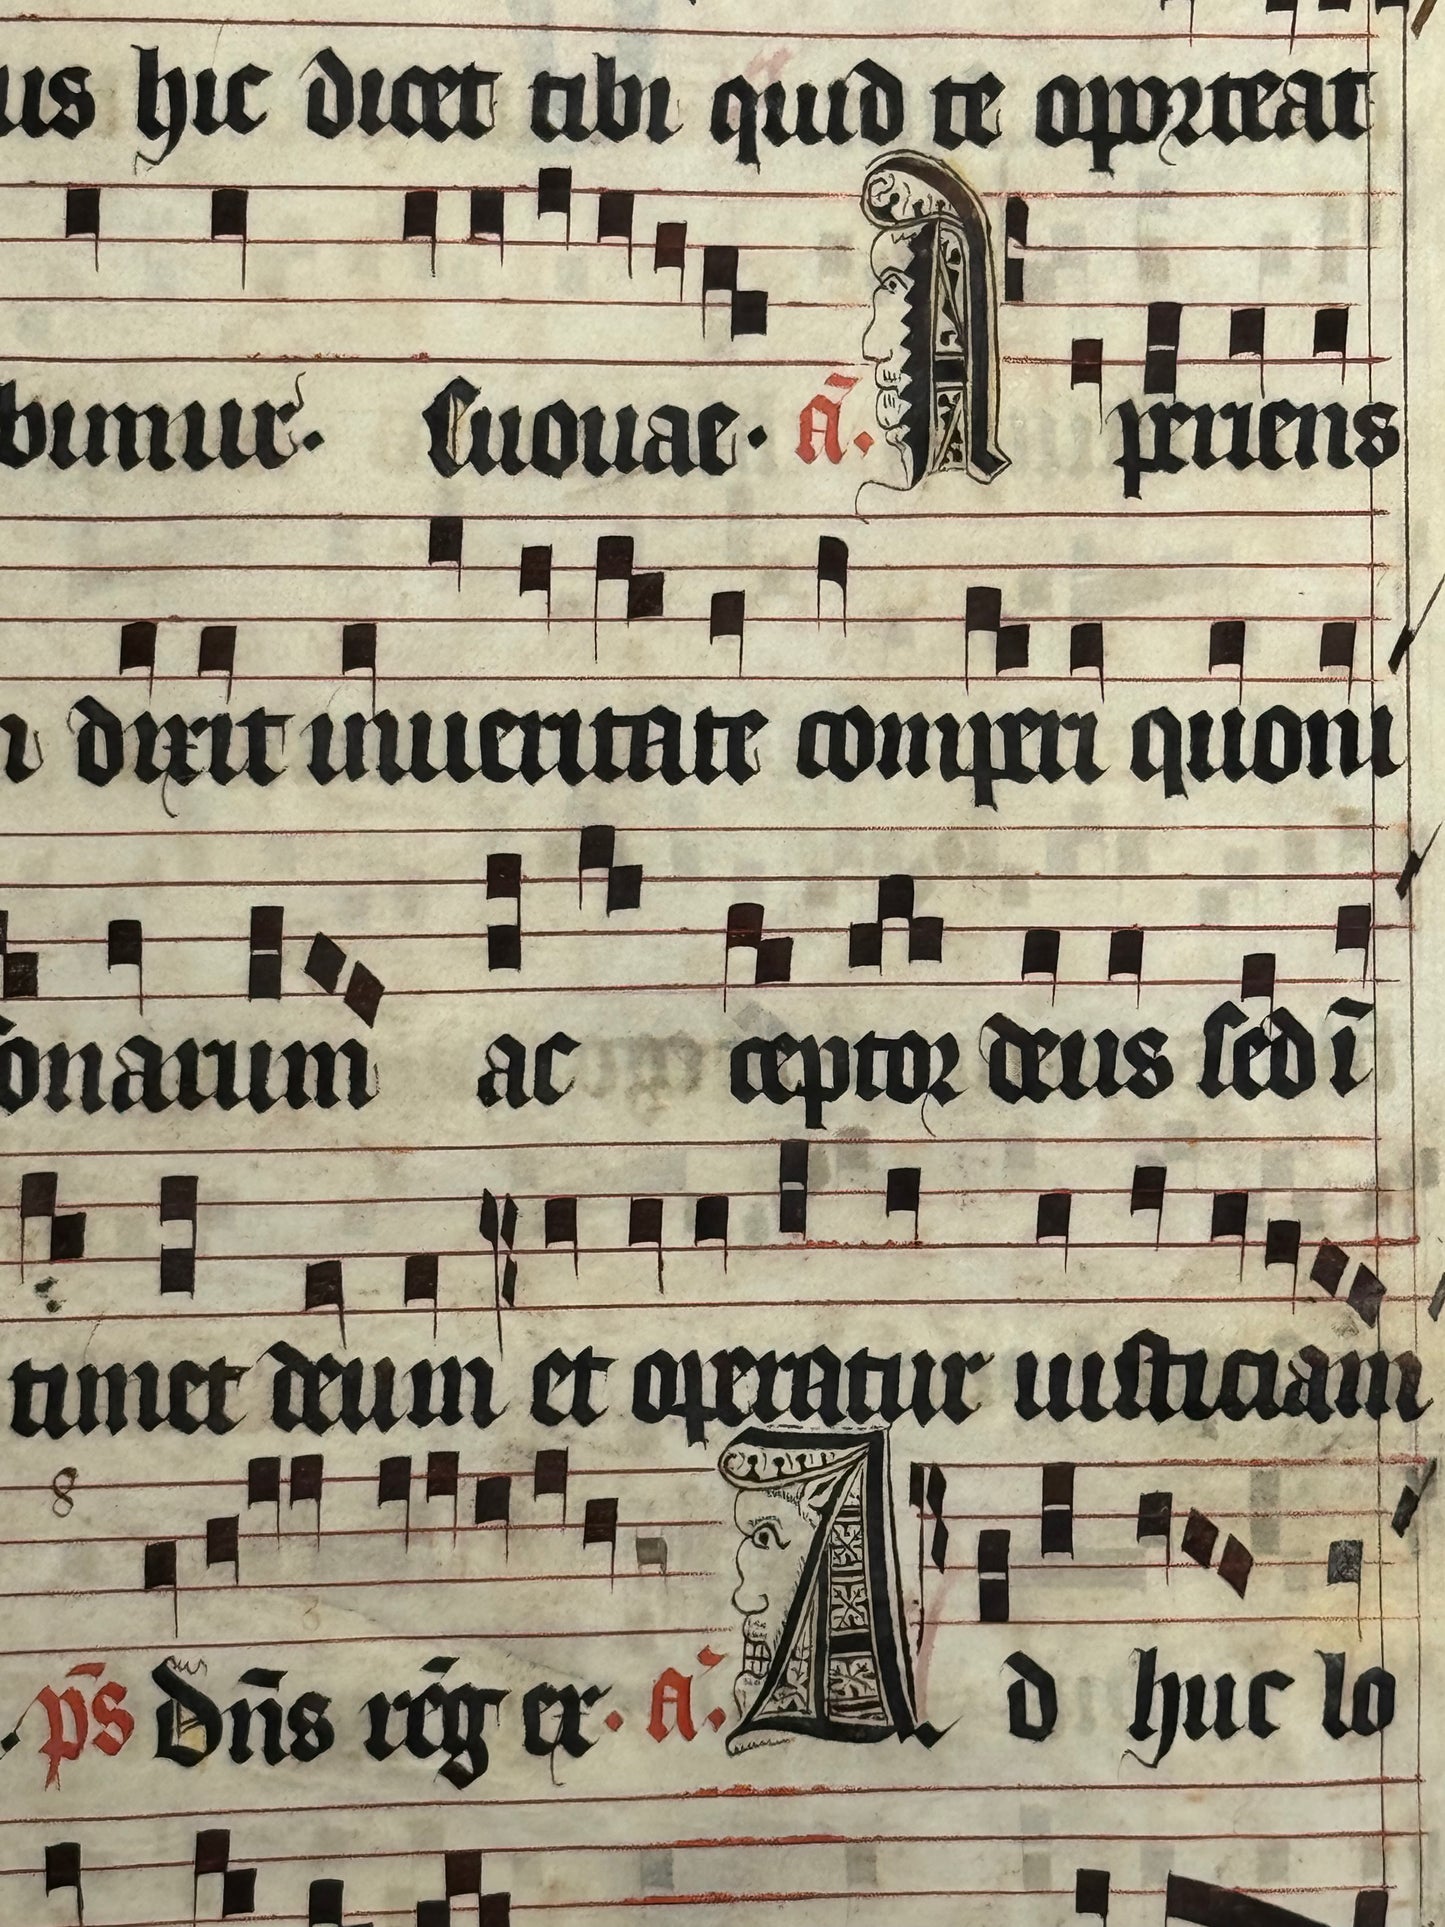 us hic dicet tibi quid te oporteat
bimur. Euouae. ā. Aperiens
dixit inueritate comperi quoni
sonarum ac ceptor deus sed ī
timet deum et operatur iusticiam
8
ps̄ dn̄s rēg er. ā. Ad huc lo